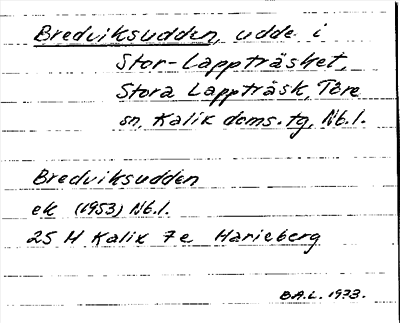 Bredviksudden, udde i
Stor-Lappträsket,
Stora Lappträsk, Töre
sn, Kalix doms. tg, Nb. l.
Bredviksudden
ek (1953) Nb. l.
25 M Kalix 7e Marieberg
B.A.L. 1973.